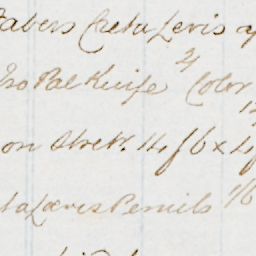 Fabers Creta Levis
Pal Knife 2/ Color
on Stretr. 14/6 x 4/
ta Lævis Pencils 1/6